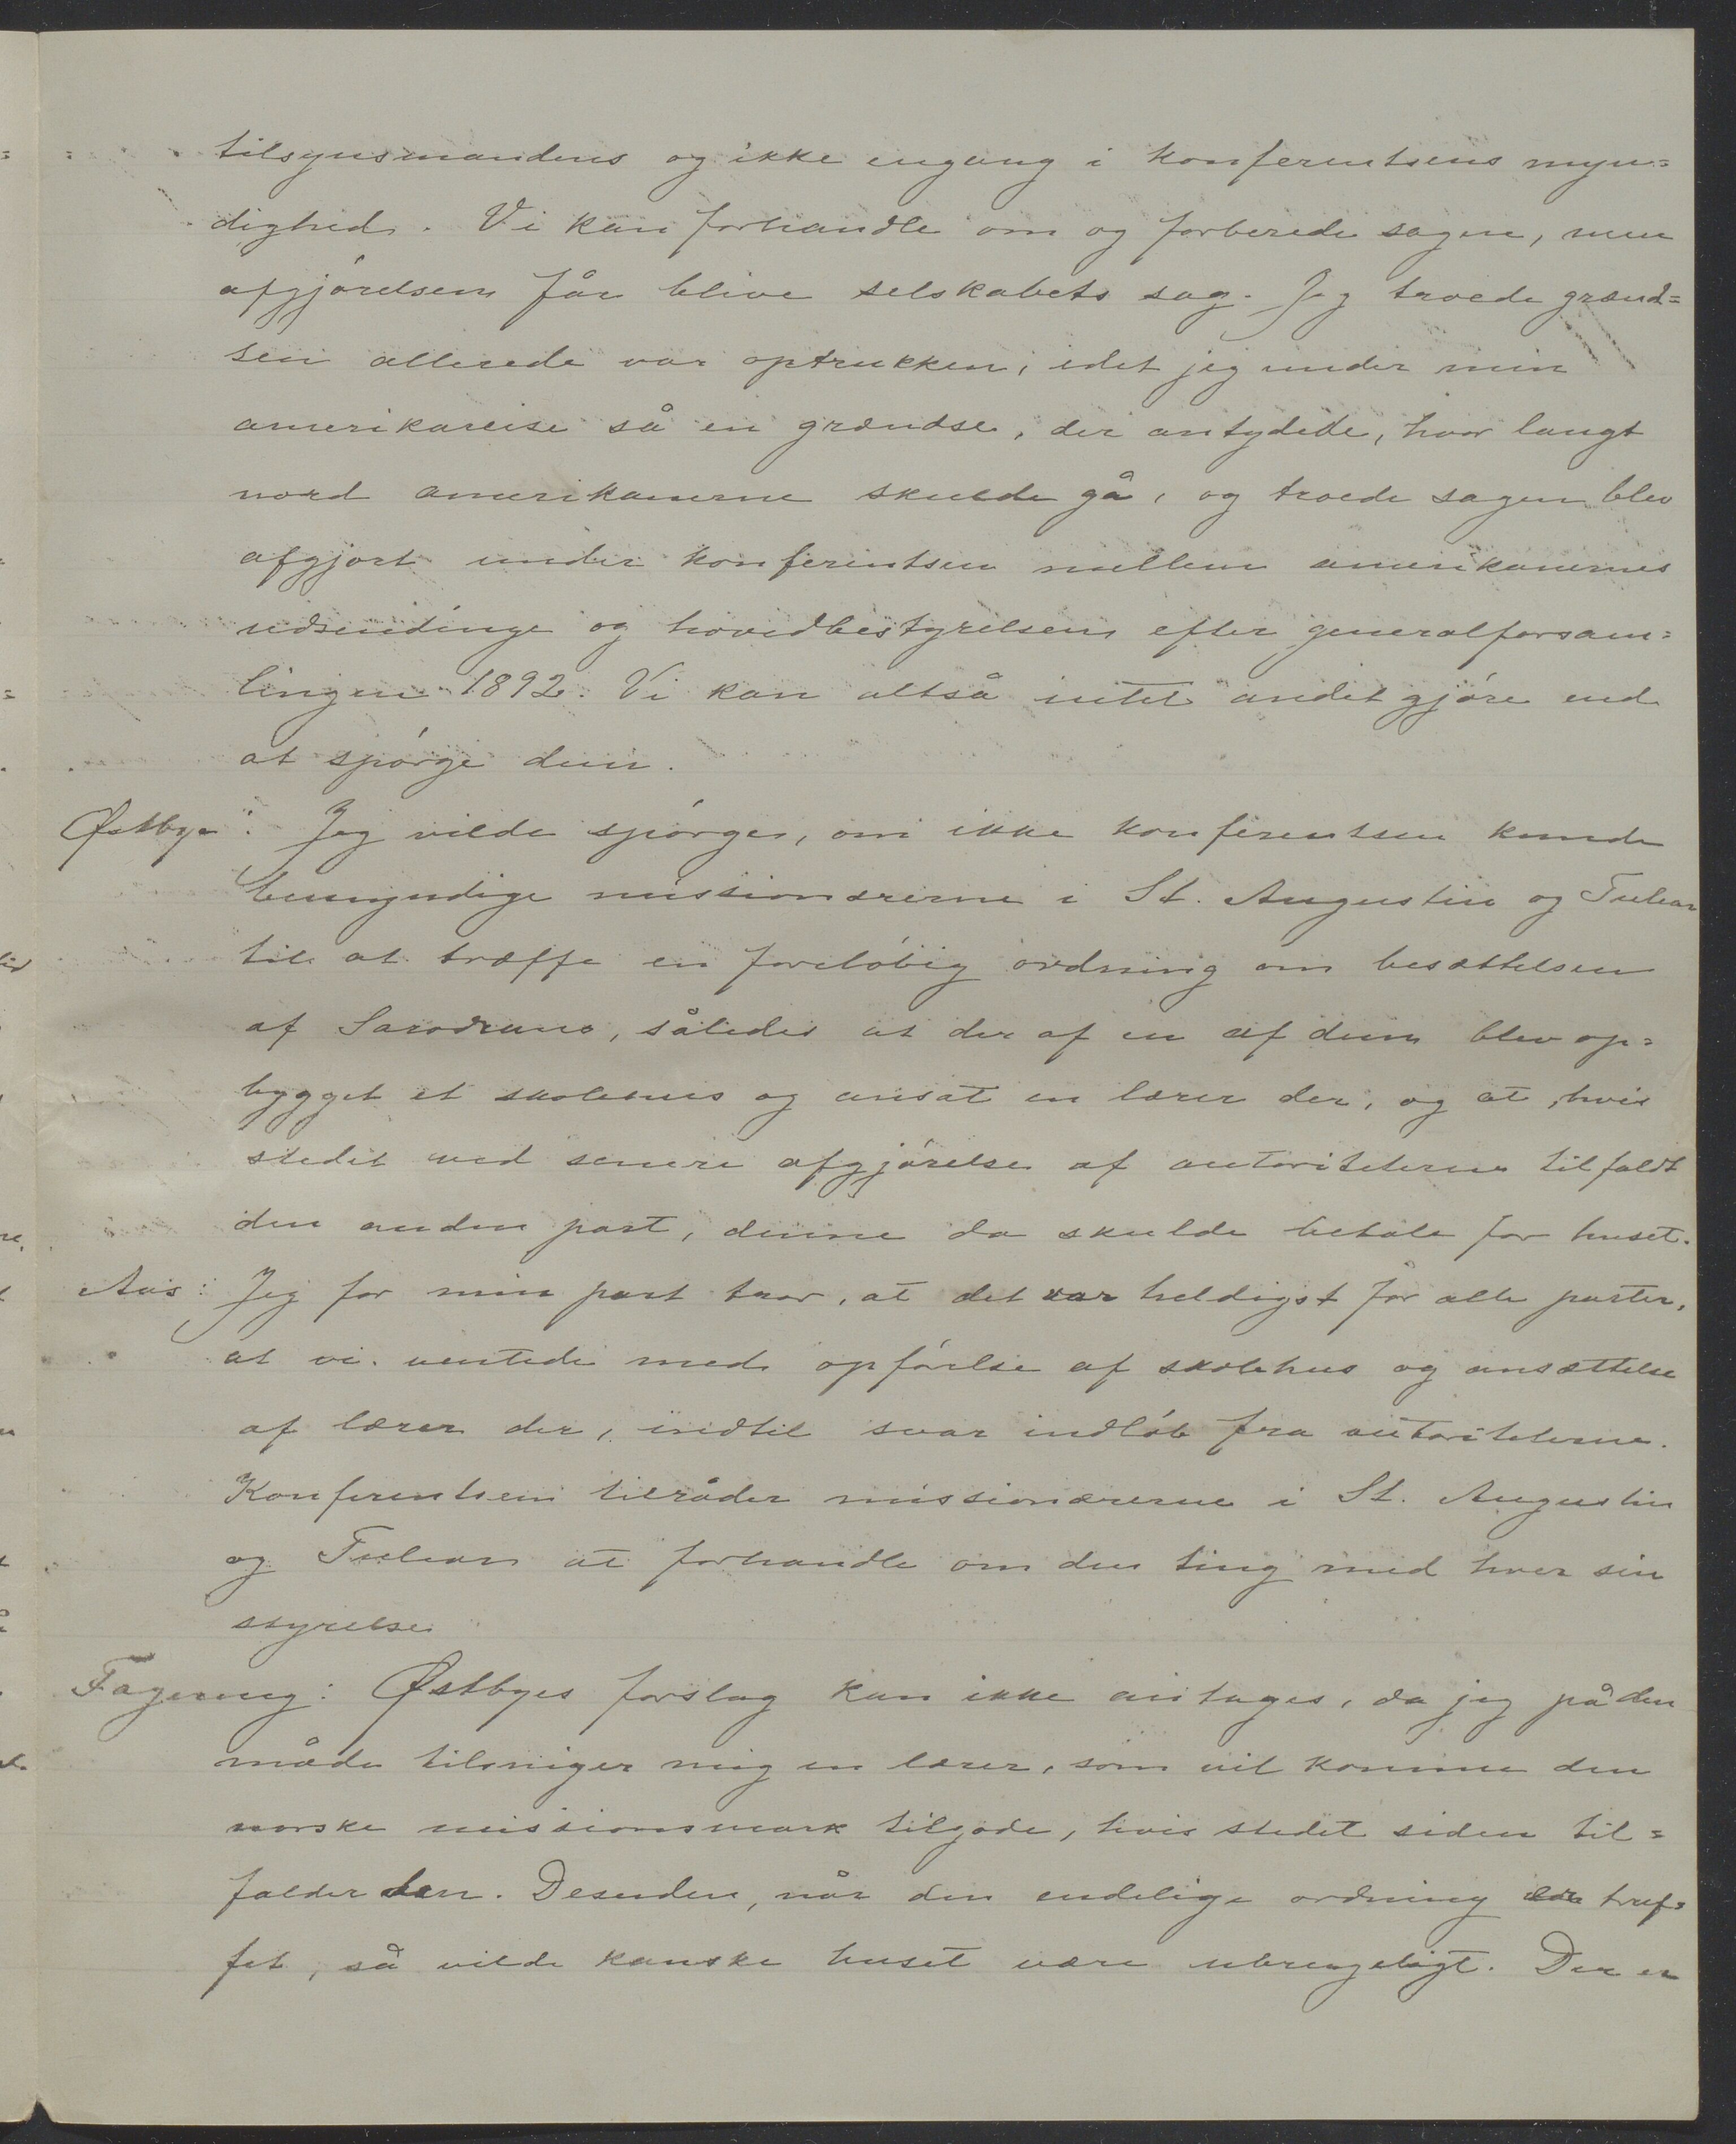 tilsynsmandens og ikke engang i konferentsens myn=
dighed. Vi kan forhandle om og forberede sagen, men
afgjórelsen får blive selskabets sag. Jeg troede grænd=
sen allerede var optrukken, idet jeg under min
amerikareise så en grændse, der antydede, hvor langt
nord amerikanerne skulde gå, og troede sagen blev
afgjort under konferentsen mellem amerikanernes
udsendinge og hovedbestyrelsen efter generalforsam=
lingen 1892. Vi kan altså intet andet gjóre end
at spórge dem.
Østbye: Jeg vilde spórge, om ikke konferentsen kunde
bemyndige missionærerne i St. Augustin og Tulear
til at træffe en forelóbig ordning om besættelsen
af Sarodrano, således at der af en af dem blev op=
bygget et skolehus og ansat en lærer der, og at, hvis
stedet ved senere afgjórelse af autoriteterne tilfaldt
den anden part, denne da skulde betale for huset.
Aas: Jeg for min part tror, at det var heldigst for alle parter,
at vi ventede med opfórelse af skolehus og ansættelse
af lærer der, indtil svar indlób fra autoriteterne.
Konferentsen tilråder missionærerne i St. Augustin
og Tulear at forhandle om den ting med hver sin
styrelse.
Fagereng: Østbyes forslag kan ikke antages, da jeg på den
måde tilsniger mig en lærer, som vil komme den
norske missionsmark tilgode, hvis stedet siden til=
falder den. Desuden, når den endelige ordning er truf=
fet, så vilde kanske huset være ubrugeligt. Der er